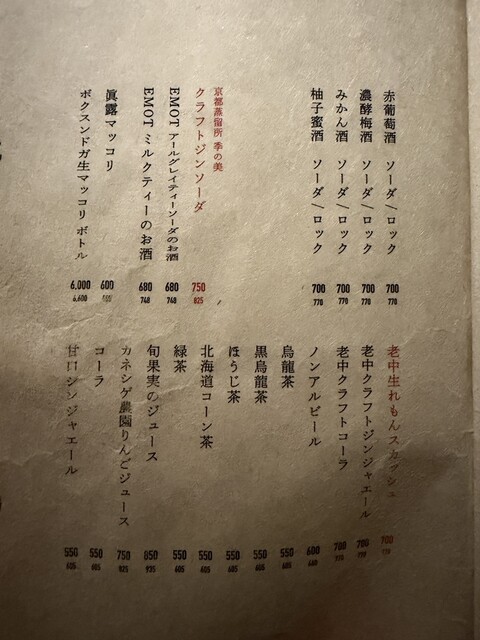 赤葡萄酒 ソーダ/ロック 700 770
濃酵梅酒 ソーダ/ロック 700 770
みかん酒 ソーダ/ロック 700 770
柚子蜜酒 ソーダ/ロック 700 770
京都蒸留所 季の美
クラフトジンソーダ 750 825
EMOT アールグレイティーソーダのお酒 680 748
EMOT ミルクティーのお酒 680 748
眞露マッコリ 600
ボクスンドガ生マッコリ ボトル 6,000 6,600
老中生れもんスカッシュ 700 770
老中クラフトジンジャエール 700 770
老中クラフトコーラ 700 770
ノンアルビール 600 660
烏龍茶 550 605
黒烏龍茶 550 605
ほうじ茶 550 605
北海道コーン茶 550 605
緑茶 550 605
旬果実のジュース 850 935
カネシゲ農園りんごジュース 750 825
コーラ 550 605
甘口ジンジャエール 550 605